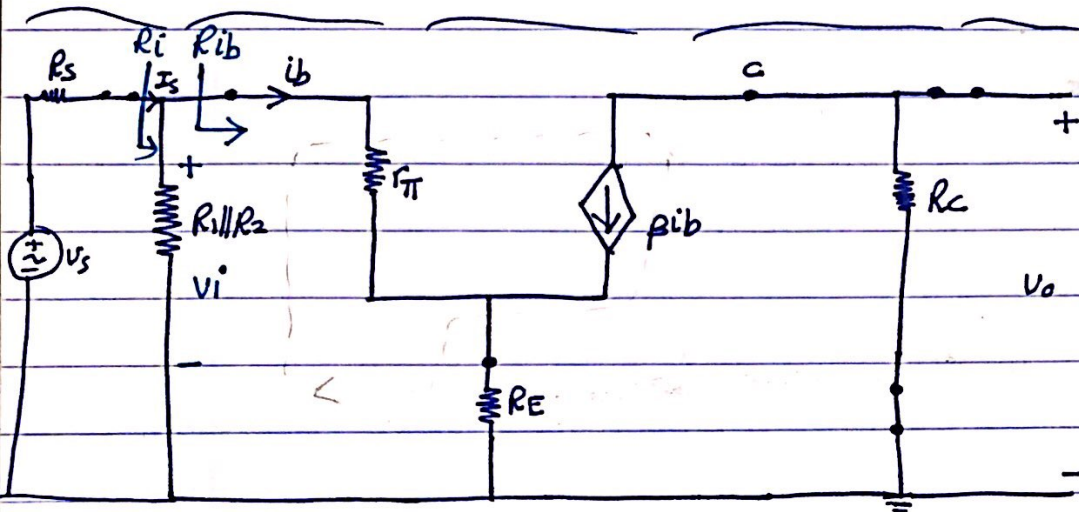 Ri Rib
Rs Is ib C
+ +
rπ Rc
R1||R2 βib
+
~
- Vs Vi Vo
-
RE
-